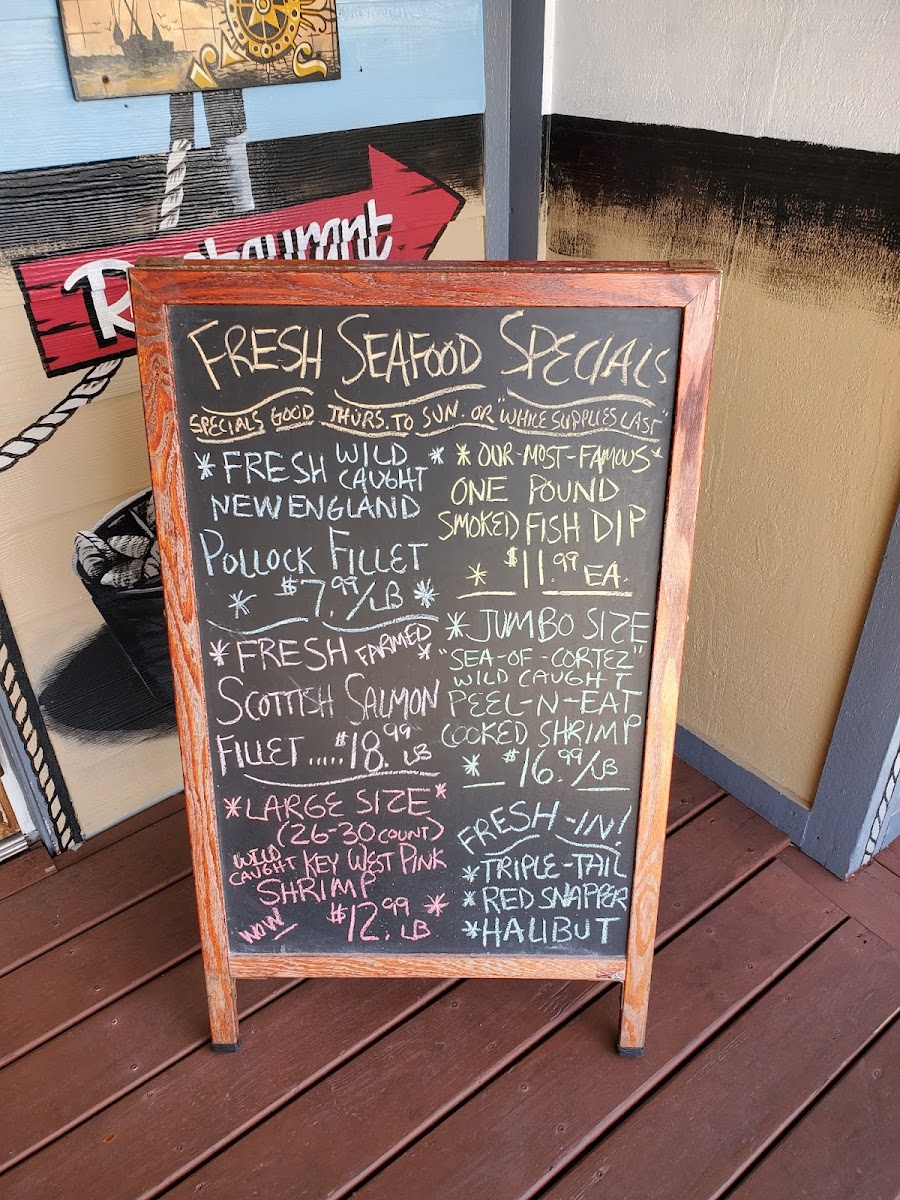 Restaurant
FRESH SEAFOOD SPECIALS
SPECIALS GOOD THURS. TO SUN. OR "WHILE SUPPLIES LAST"
* FRESH WILD CAUGHT *
NEW ENGLAND
POLLOCK FILLET
* $7.99/LB *
* FRESH FARMED *
SCOTTISH SALMON
FILLET.....$18.99 LB
* LARGE SIZE *
(26-30 COUNT)
WILD CAUGHT KEY WEST PINK
SHRIMP
WOW $12.99 LB *
* OUR-MOST-FAMOUS *
ONE POUND
SMOKED FISH DIP
* $11.99 EA.
* JUMBO SIZE
"SEA-OF-CORTEZ"
WILD CAUGHT
PEEL-N-EAT
COOKED SHRIMP
* $16.99/LB
FRESH-IN!
* TRIPLE-TAIL
* RED SNAPPER
* HALIBUT